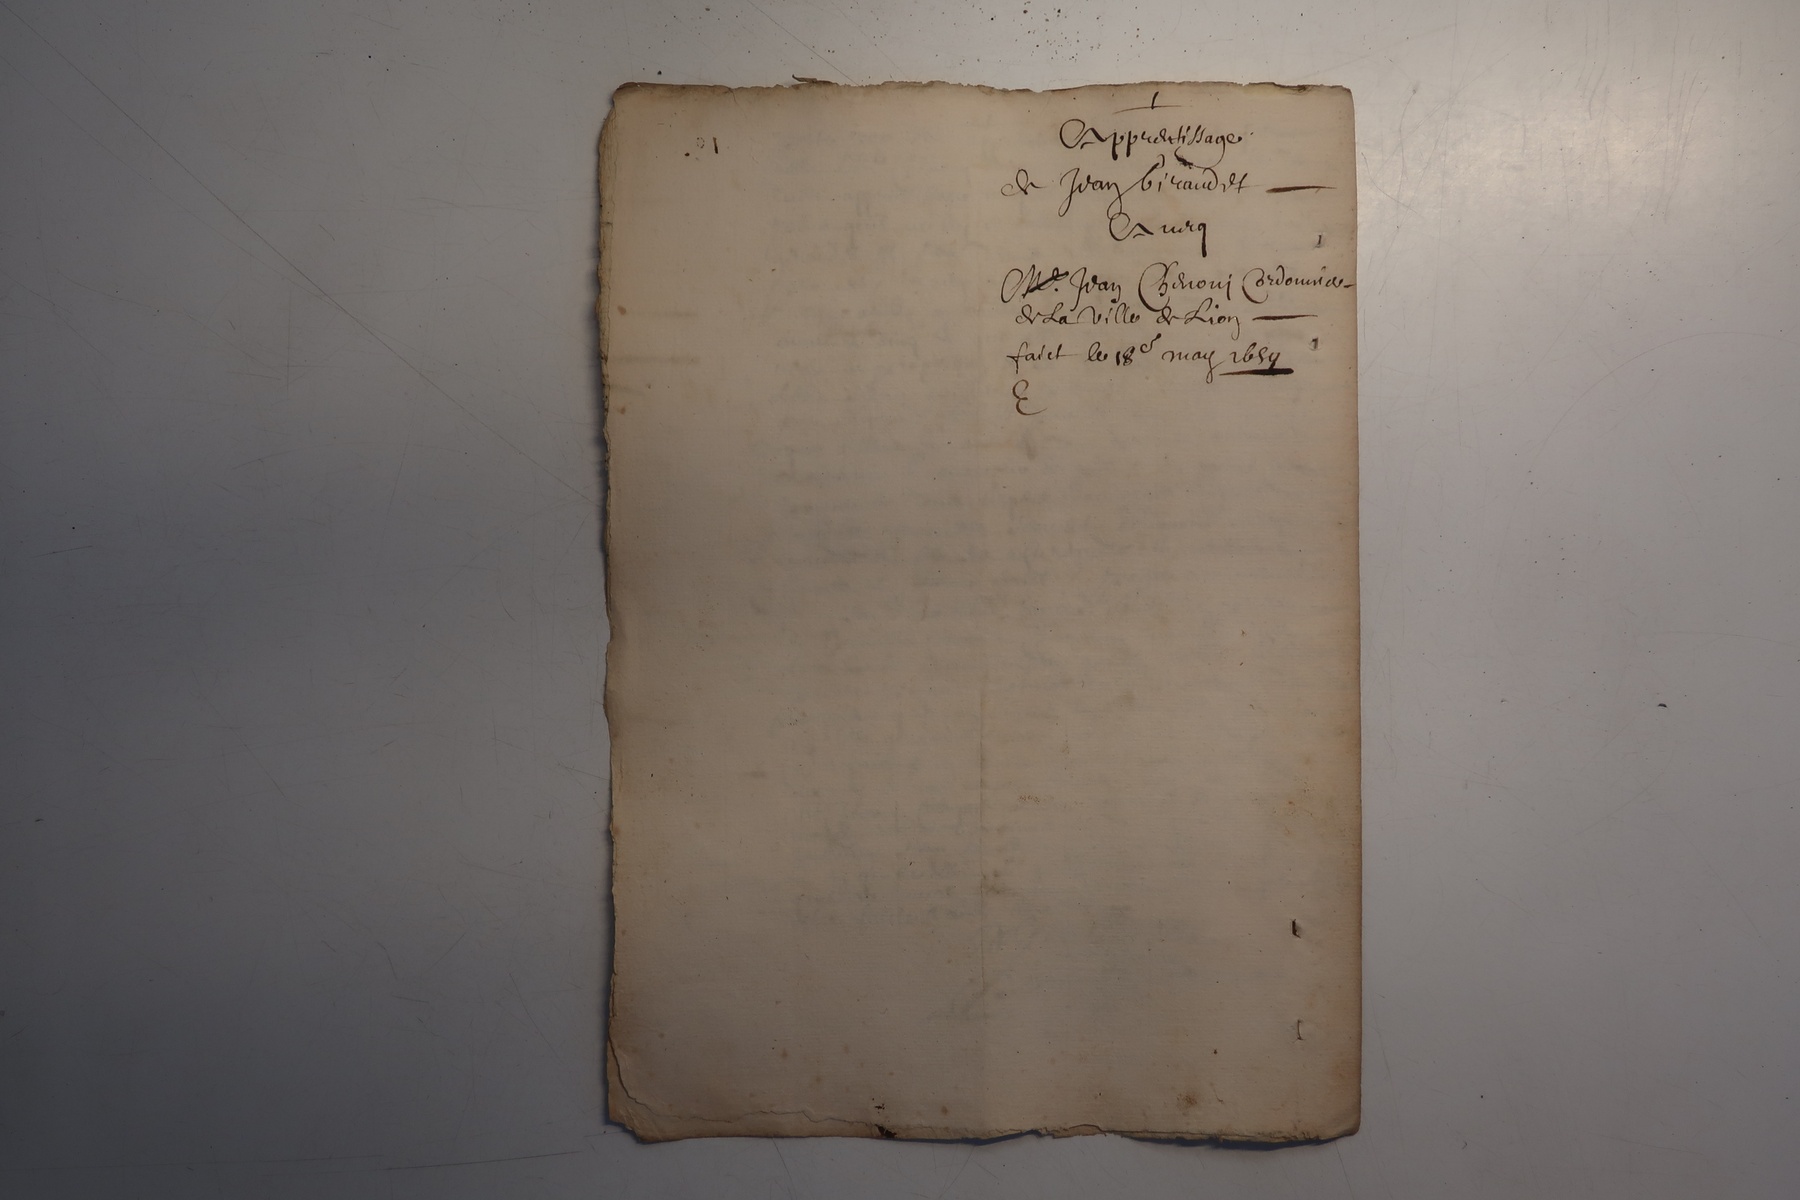 Apprentissage
de Jean Giraudet
Avecq
Me. Jean Cordonnie
de La Ville de Lion
faict le 18e may 1659